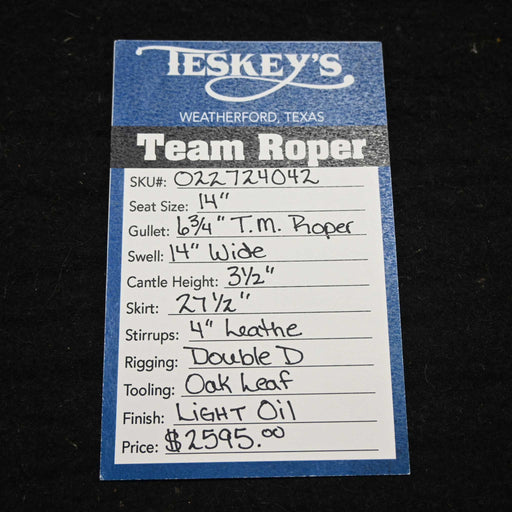 TESKEY'S
WEATHERFORD, TEXAS
Team Roper
SKU#: 022724042
Seat Size: 14"
Gullet: 6 3/4" T.M. Roper
Swell: 14" Wide
Cantle Height: 3 1/2"
Skirt: 27 1/2"
Stirrups: 4" Leathe
Rigging: Double D
Tooling: Oak Leaf
Finish: LIGHT Oil
Price: $2595.00